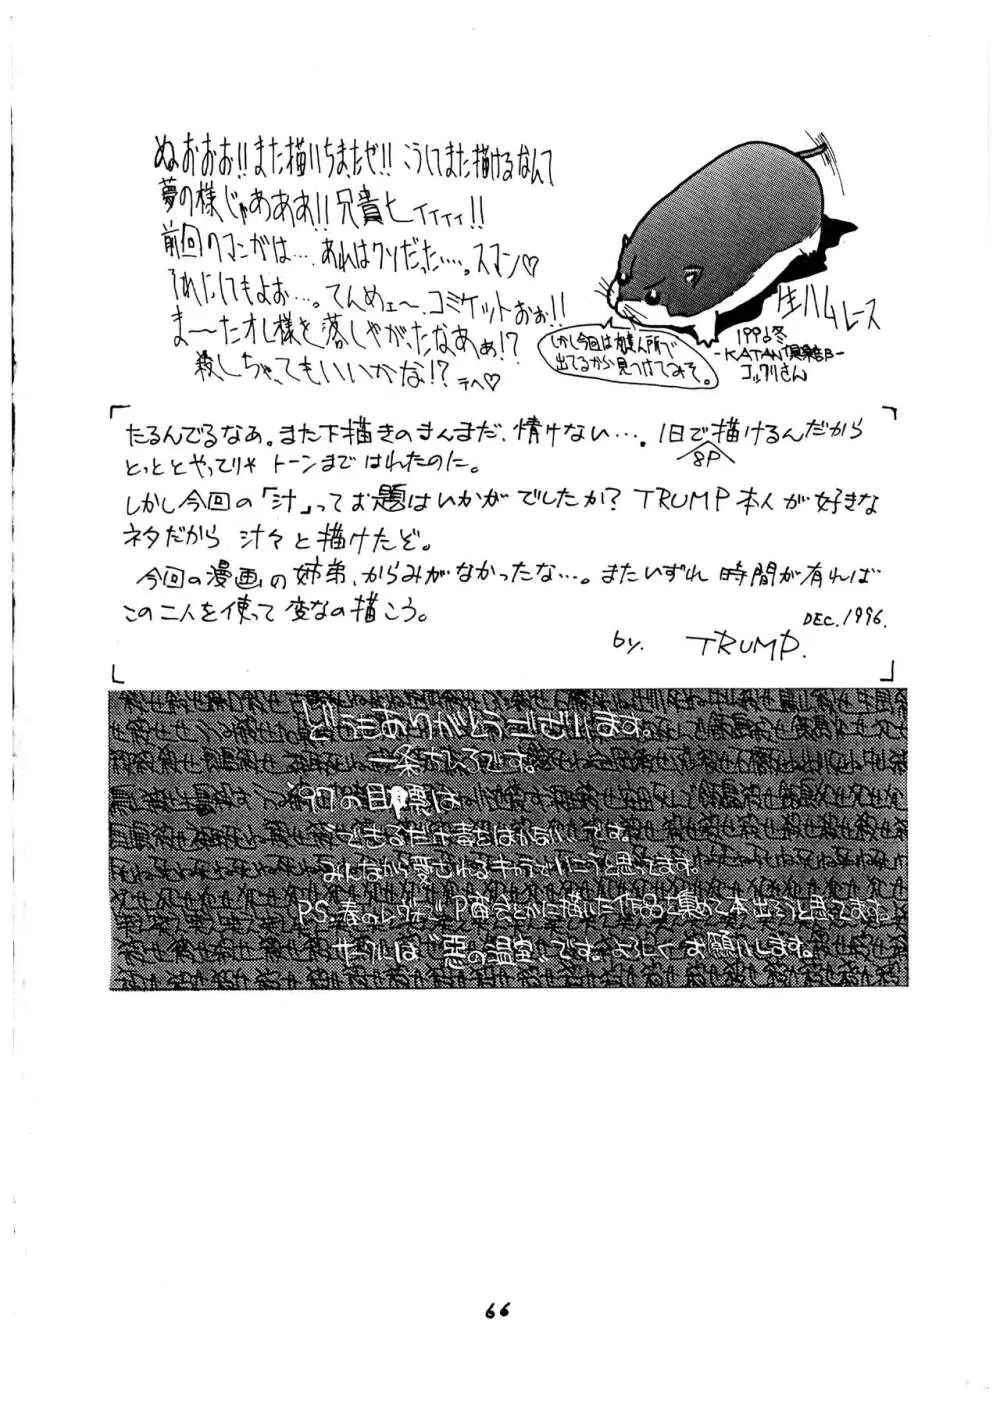 ぬおおお!!また描いちまたぜ!! こうしてまた描けるなんて
夢の様じゃあああ!!兄貴ヒィィィィ!!
前回のマンガは…あれはクソだった…。スマン♡
それにしてもよお…。てんめェ〜、コミケットおお!!
ま〜たオレ様を落しやがったなあぁ!?
殺しちゃってもいいかな!? テヘ♡
しかし今回は
出てるから見つけてみそ。
生ハムレース
1996冬
-KATAN倶楽部-
コックリさん
たるんでるなあ。また下描きのまんまだ、情けない…。1日で描けるんだから
8P
とっととやってりゃ トーンまで はれたのに。
しかし今回の「汁」ってお題はいかがでしたか? TRUMP本人が好きな
ネタだから 汁々と描けたぞ。
今回の漫画の姉弟、からみがなかったな…。またいずれ 時間が有れば
この二人を使って変なの描こう。
DEC.1996.
by. TRUMP.
どうもありがとうございます。
一条ちひろです。
'97の目標は
"できるだけ毒をはかない"です。
みんなから愛されるキャラでいこうと思ってます。
PS.春のレヴォで P宙合とかに描いた作品を集めて本出そうと思ってます
サークルは"悪の温室"です。よろしくお願いします。
66